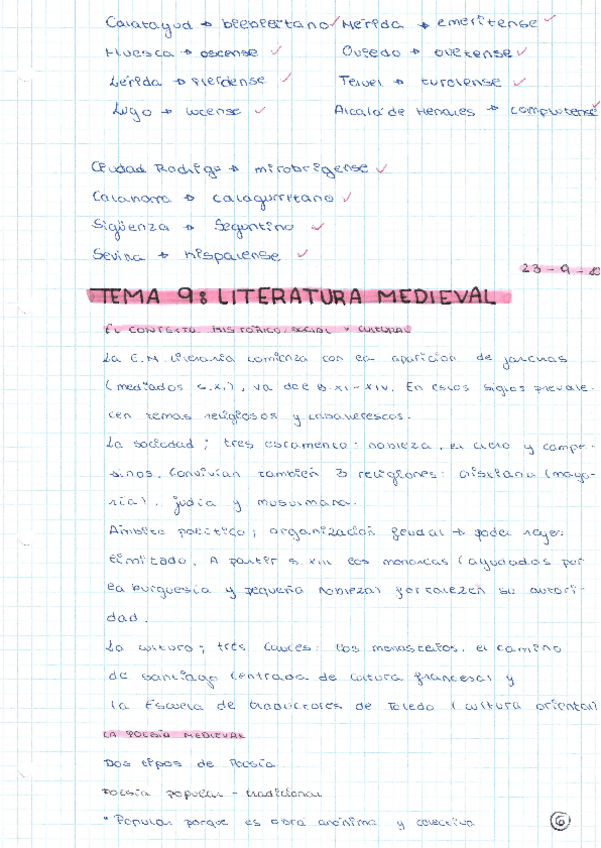 Calatayud → bilbilitano ✓ Mérida → emeritense ✓
Huesca → oscense ✓ Oviedo → ovetense ✓
Lérida → ilerdense ✓ Teruel → turolense ✓
Lugo → lucense ✓ Alcalá de Henares → complutense
Ciudad Rodrigo → mirobrigense ✓
Calahorra → calagurritano ✓
Sigüenza → Seguntino ✓
Sevilla → hispalense ✓
23-9-
TEMA 9: LITERATURA MEDIEVAL
EL CONTEXTO HISTÓRICO, SOCIAL Y CULTURAL
La E.M. literaria comienza con la aparición de jarchas
(mediados s.XI), va del s. XI - XIV. En estos siglos prevale-
cen temas religiosos y caballerescos.
La sociedad; tres estamentos: nobleza, el clero y campe-
sinos. Convivían también 3 religiones: cristiana (mayo-
ría), judía y musulmana.
Ámbito político; organización feudal → poder reyes
limitado. A partir s. XIII los monarcas (ayudados por
la burguesía y pequeña nobleza) fortalezen su autori-
dad.
La cultura; tres cauces: los monasterios, el camino
de Santiago (entrada de cultura francesa) y
la Escuela de traductores de Toledo (cultura oriental)
LA POESÍA MEDIEVAL
Dos tipos de Poesía
Poesía popular - tradicional
" Popular porque es obra anónima y colectiva
6